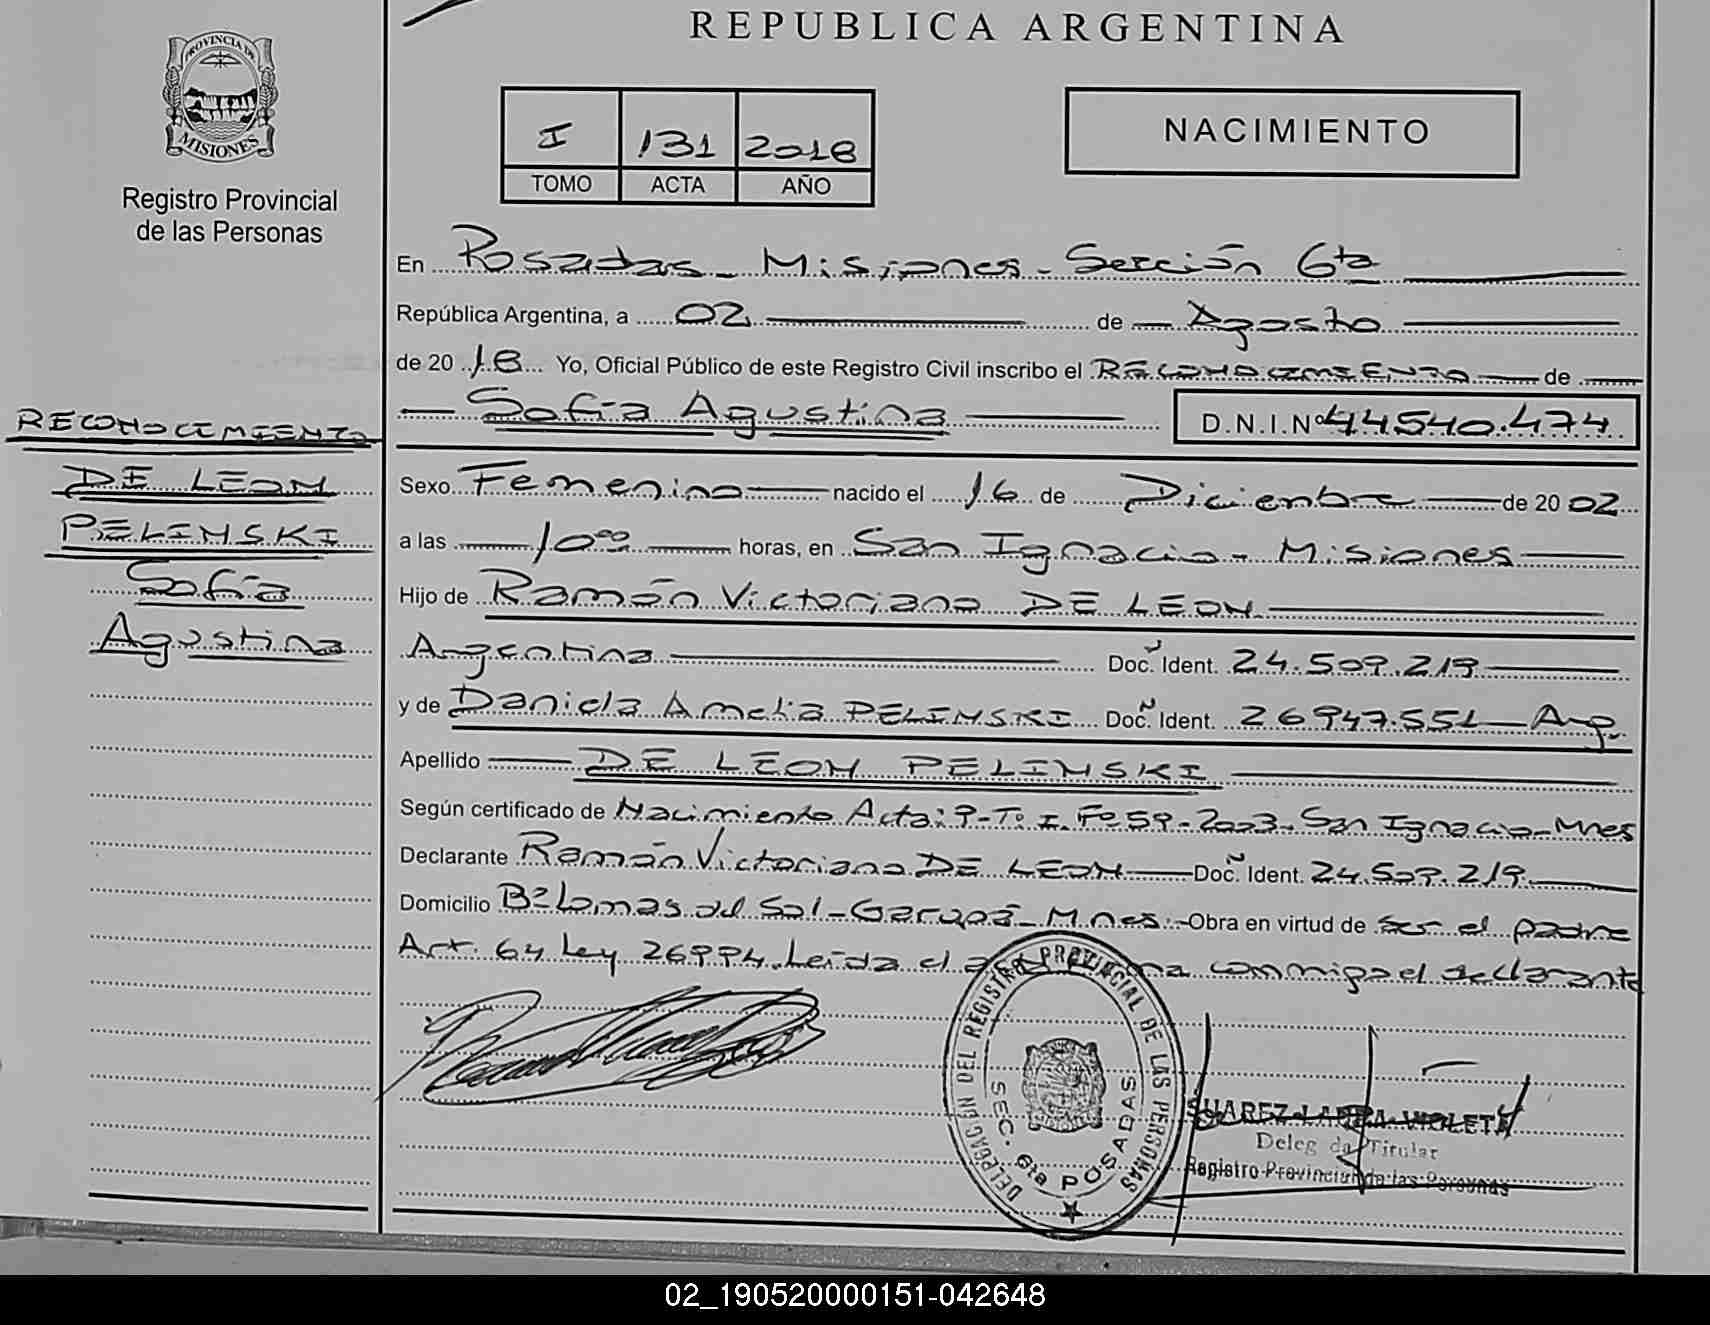 REPUBLICA ARGENTINA
PROVINCIA DE
MISIONES
Registro Provincial
de las Personas
I 131 2018
TOMO ACTA AÑO
NACIMIENTO
En Posadas - Misiones - Sección 6ta
República Argentina, a 02 de Agosto
de 2018 Yo, Oficial Público de este Registro Civil inscribo el RECONOCIMIENTO de
Sofía Agustina D.N.I.Nº 44540.474
RECONOCIMIENTO
DE LEON
PELINSKI
Sofía
Agustina
Sexo Femenino nacido el 16 de Diciembre de 20 02
a las 10⁰⁰ horas, en San Ignacio - Misiones
Hijo de Ramón Victoriano DE LEON
Argentina Doc. Ident. 24.509.219
y de Daniela Amelia PELINSKI Doc. Ident. 26947.551 - Arg.
Apellido DE LEON PELINSKI
Según certificado de Nacimiento Acta: 9-Tº I. Fº 59-2003. San Ignacio-Mnes
Declarante Ramón Victoriano DE LEON Doc. Ident. 24.509.219
Domicilio Bº Lomas del Sol - Garupá - Mnes.- Obra en virtud de ser el padre
Art. 64 Ley 26994. Leída el conmigo el declarante
DELEGACIÓN DEL REGISTRO PROVINCIAL DE LAS PERSONAS
SEC. 6ta POSADAS
SUAREZ LAURA VIOLETA
Delegada Titular
Registro Provincial de las Personas
02_190520000151-042648